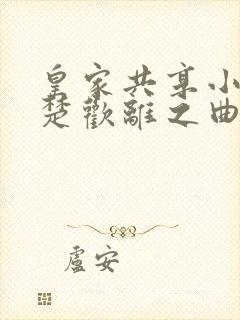 皇家共享小
楚歡離之曲
盧安